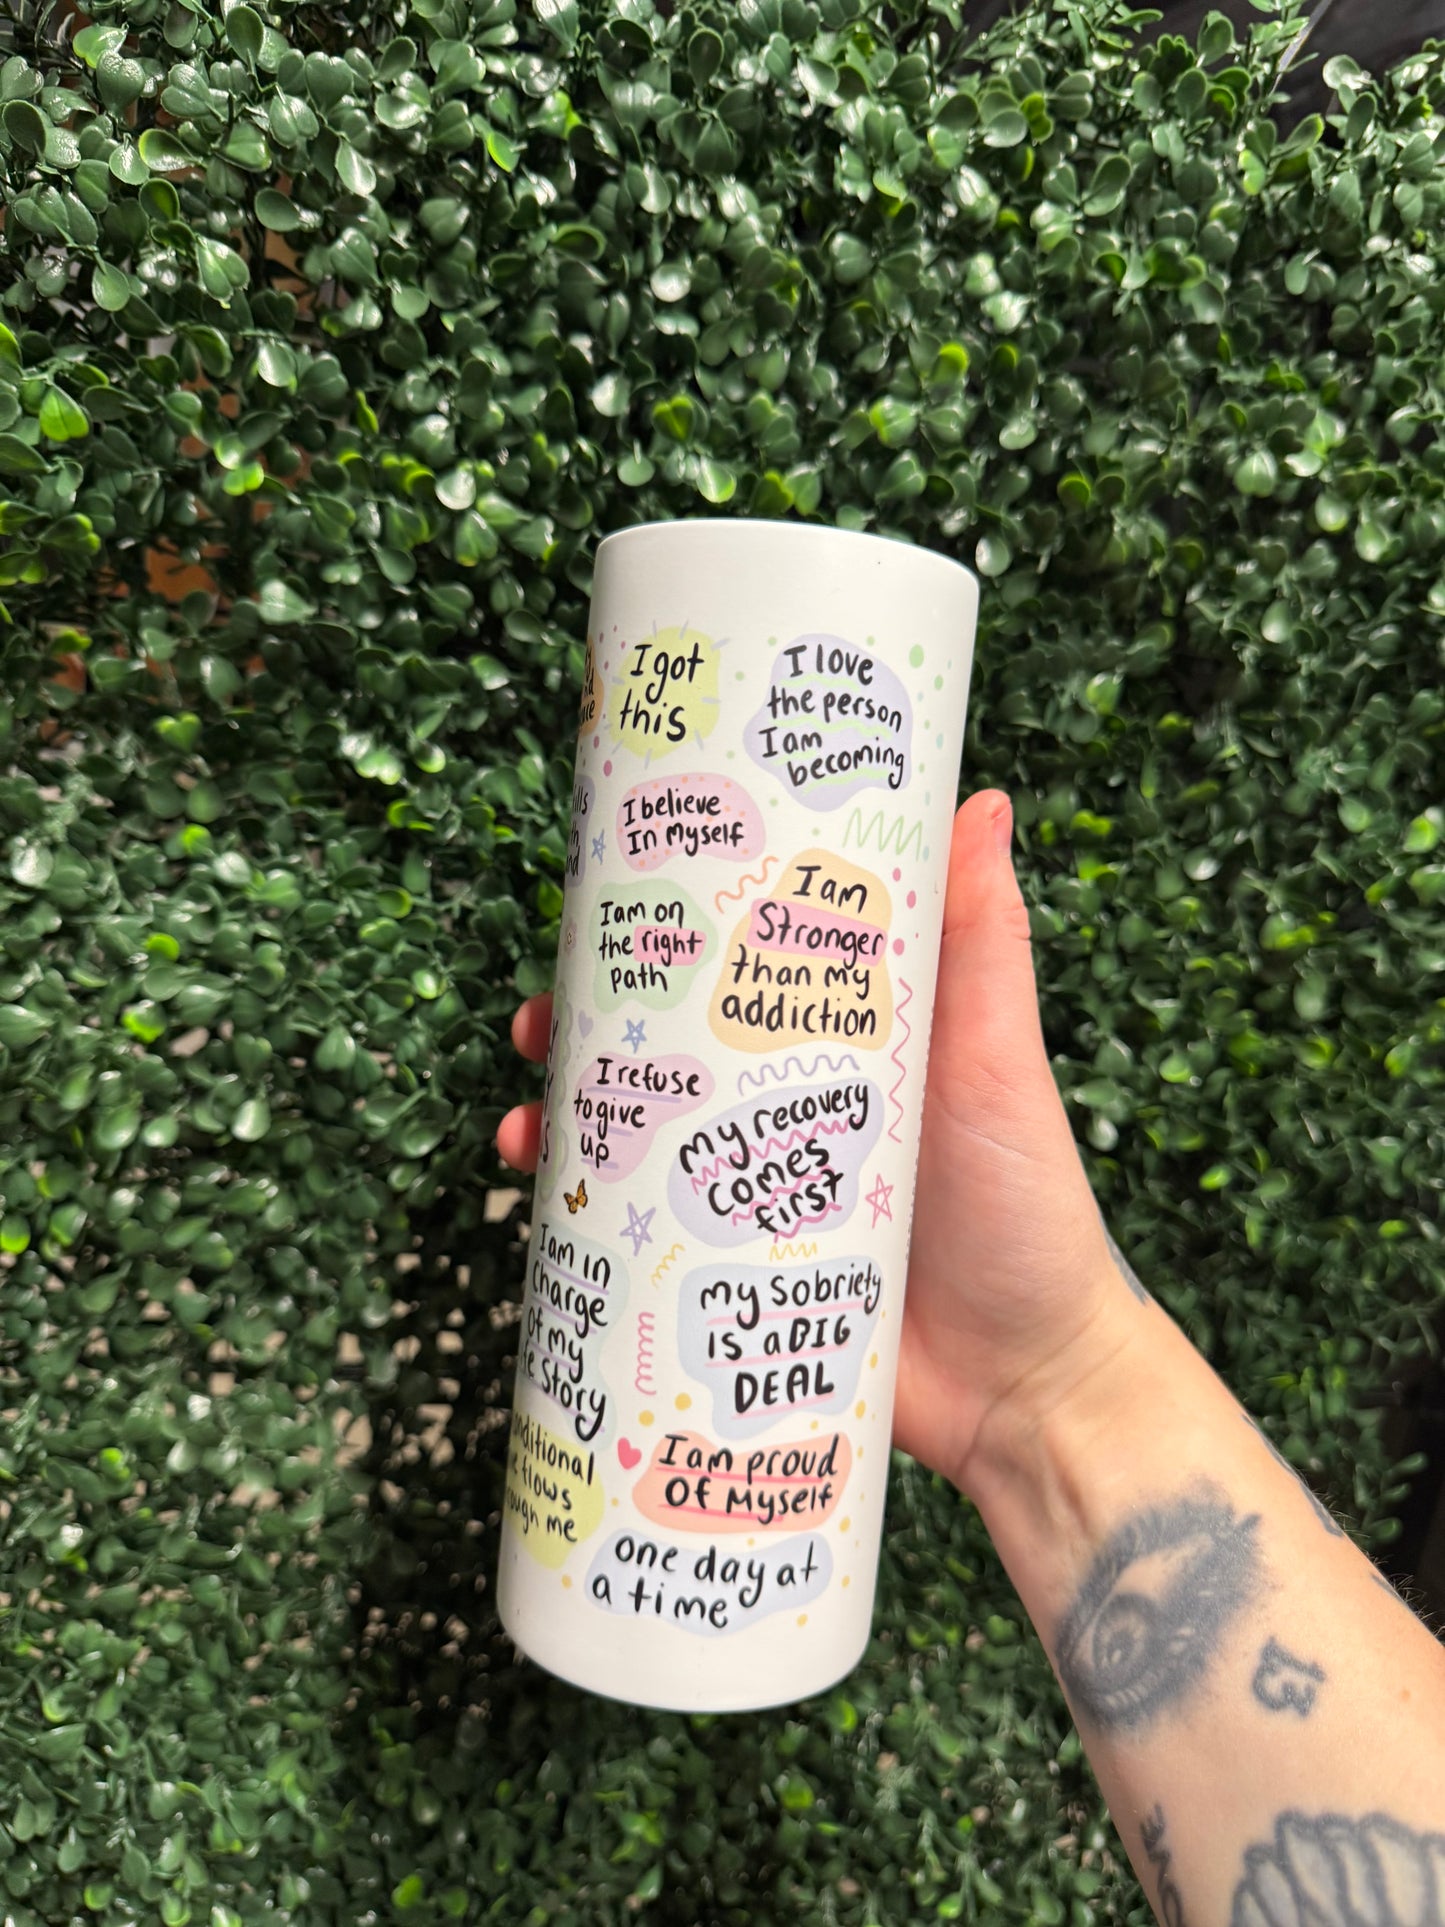 I got
this
I love
the person
I am
becoming
I believe
In Myself
I am
Stronger
than my
addiction
I am on
the right
path
I refuse
to give
up
my recovery
comes
first
I am in
charge
of my
Story
my sobriety
is a BIG
DEAL
I am proud
Of Myself
flows
me
one day at
a time
13